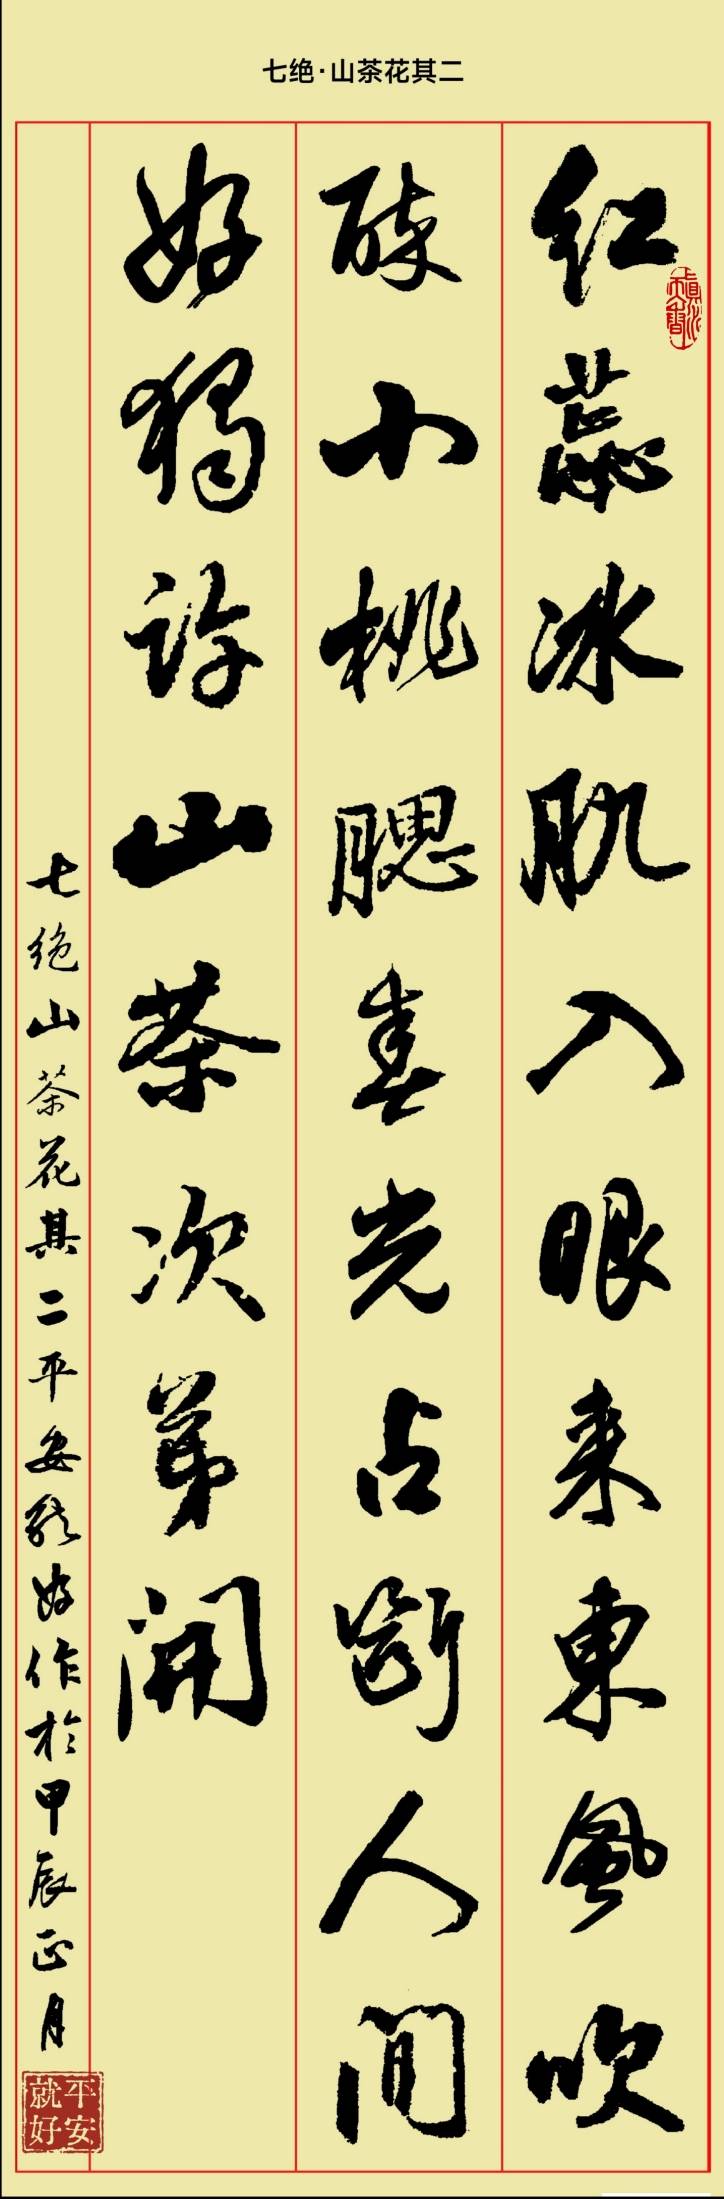 七绝·山茶花其二
红蕊冰肌入眼来東風吹
醉小桃腮春光占断人间
好獨许山茶次第开
七绝山茶花其二平安就好作於甲辰正月
平安就好